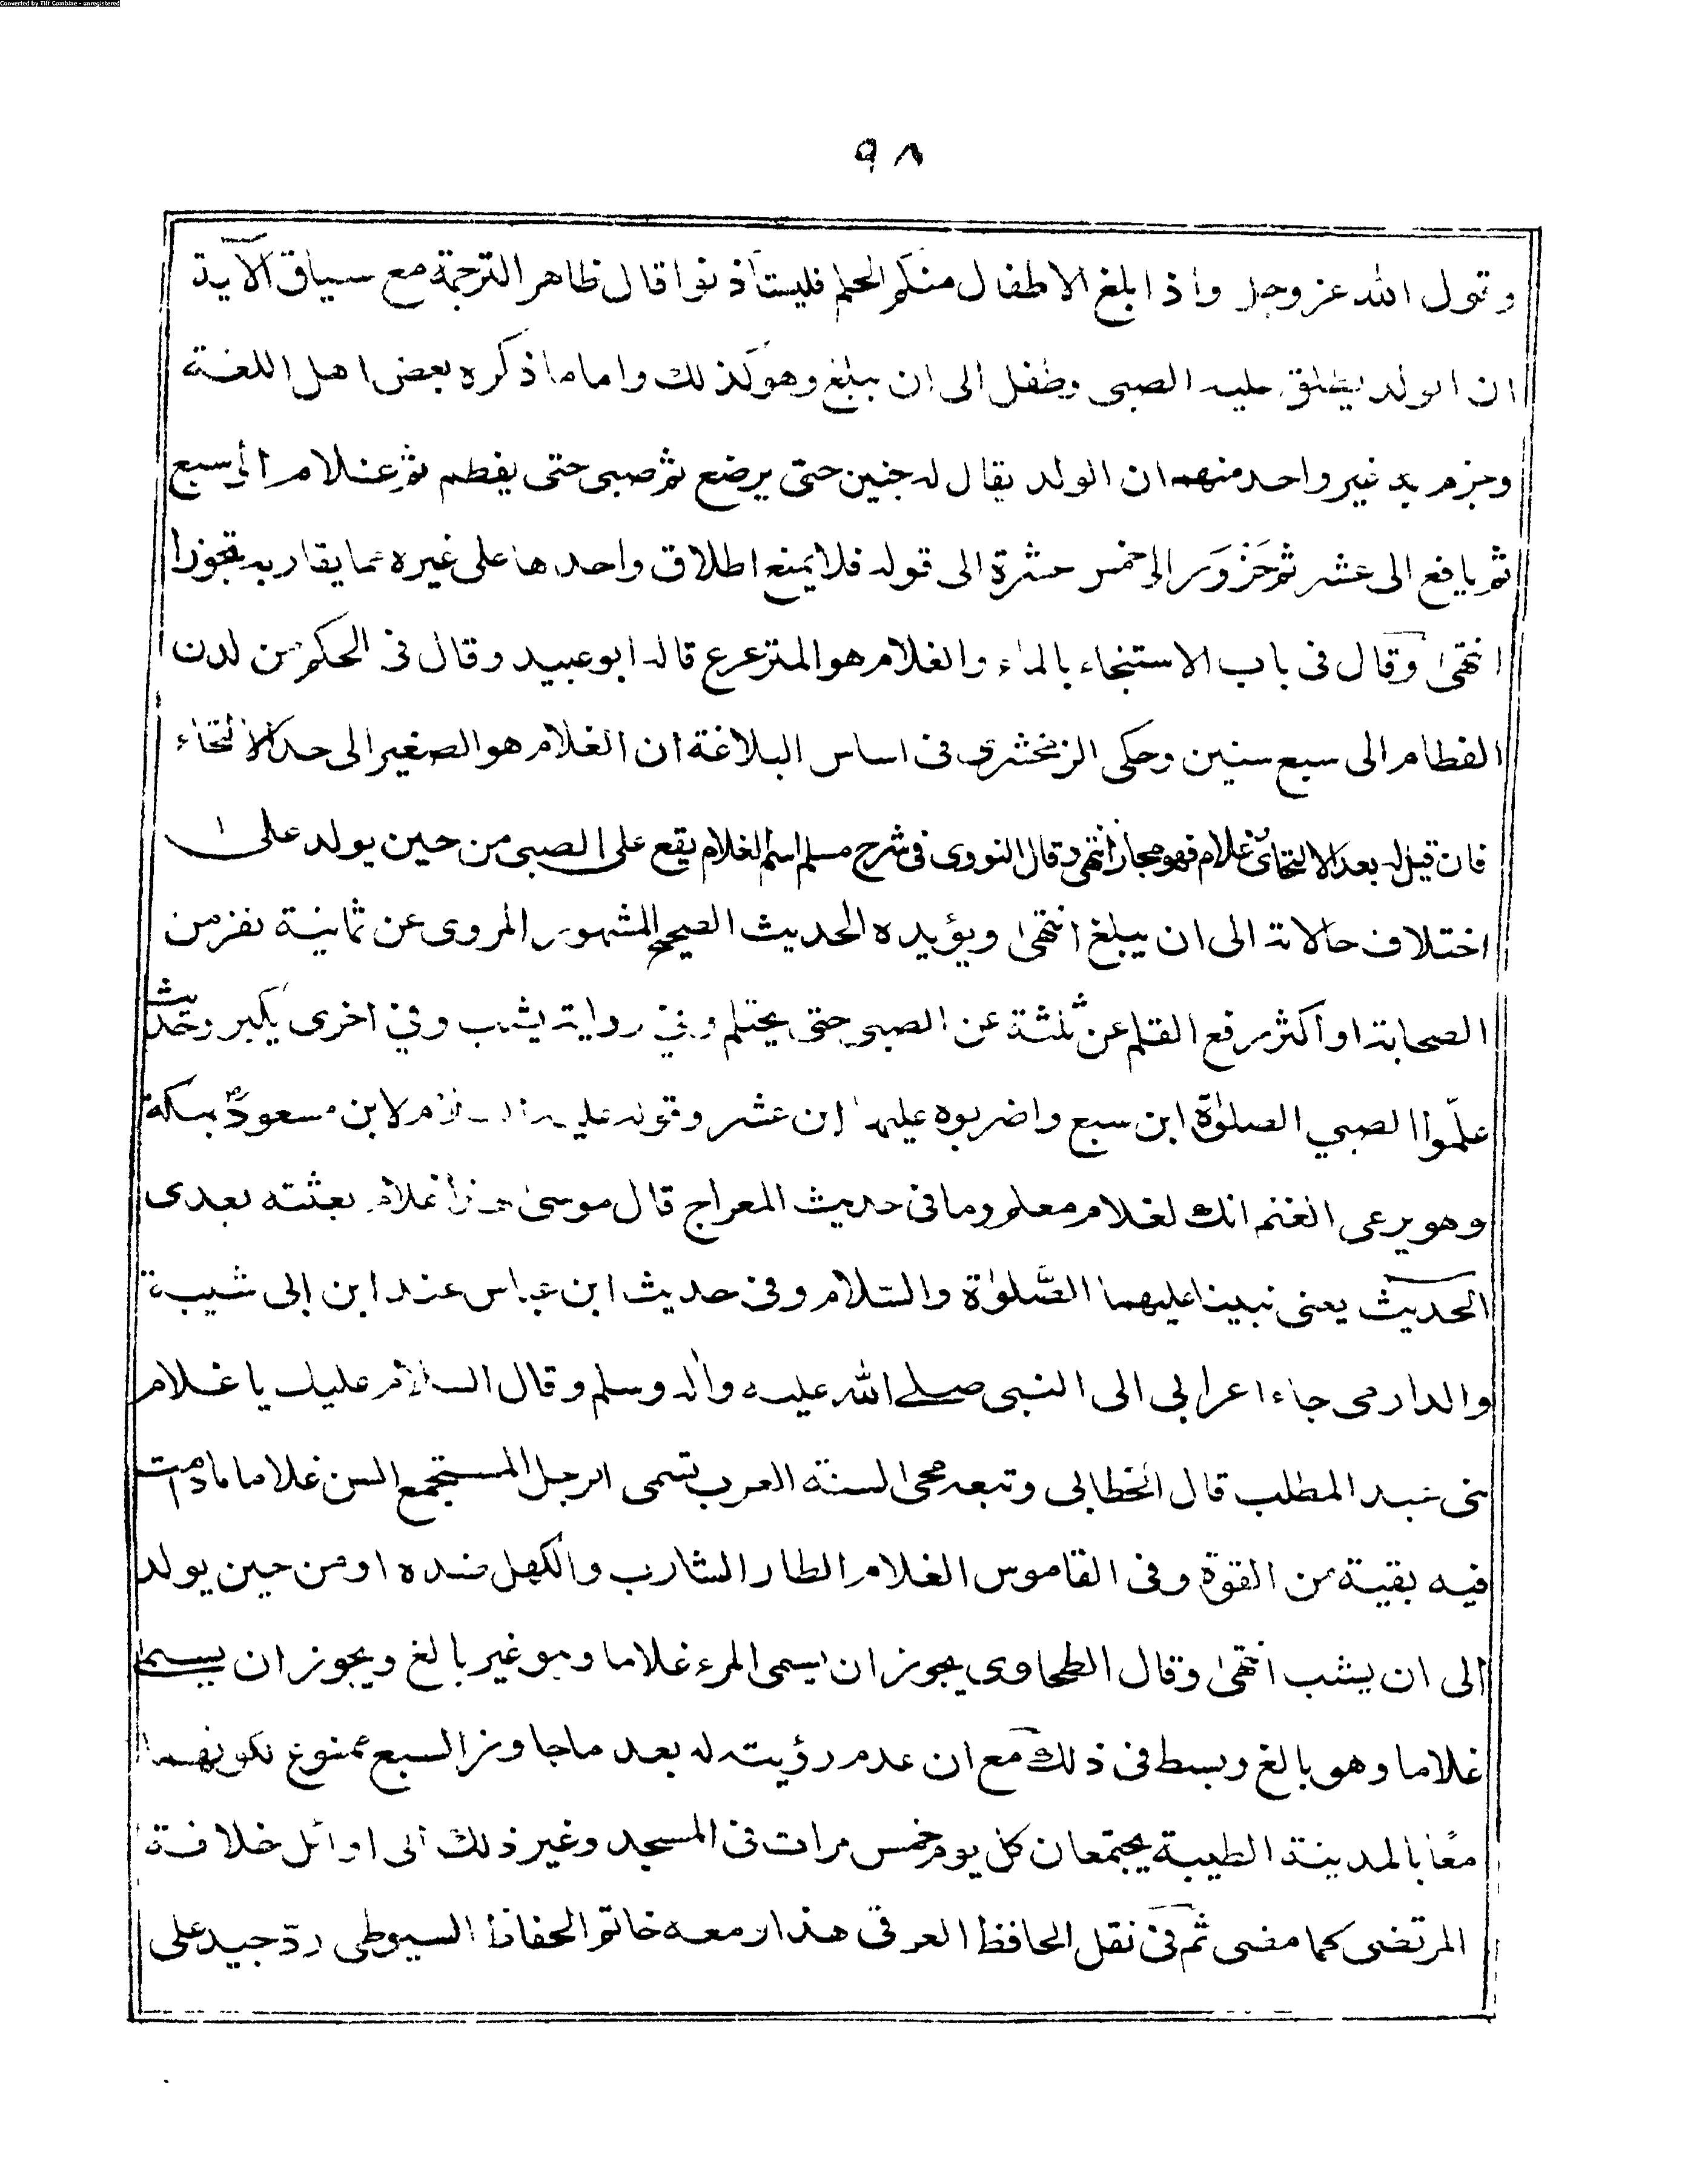 Converted by Tiff Combine - unregistered
٩٨
وقول الله عز وجل واذا بلغ الاطفال منكم الحلم فليستأذنوا قال ظاهر الترجمة مع سياق الآية
ان الولد يطلق عليه الصبى وطفل الى ان يبلغ وهو كذلك واما ما ذكره بعض اهل اللغة
وجزم به غير واحد منهم ان الولد يقال له جنين حتى يرضع ثم صبى حتى يفطم ثم غلام الى سبع
ثم يافع الى عشر ثم حَزَوَّر الى خمس عشرة الى قوله فلا يمنع اطلاق واحدها على غيره مما يقاربه تجوزا
انتهىٰ وقال فى باب الاستنجاء بالماء والغلام هو المترعرع قاله ابو عبيد وقال فى الحكم من لدن
الفطام الى سبع سنين وحكى الزمخشرى فى اساس البلاغة ان الغلام هو الصغير الى حد الالتحاء
فان قيل له بعد الالتحائ غلام فهو مجاز انتهى وقال النووى فى شرح مسلم اسم الغلام يقع على الصبى من حين يولد على
اختلاف حالاته الى ان يبلغ انتهىٰ ويؤيده الحديث الصحيح المشهور المروى عن ثمانية نفر من
الصحابة او اكثر رفع القلم عن ثلثة عن الصبى حتى يحتلم وفى رواية يشب وفى اخرى يكبر وحديث
علّموا الصبي الصلوٰة ابن سبع واضربوه عليها ابن عشر وقوله عليه السلام لابن مسعود بمكة
وهو يرعى الغنم انك لغلام معلم وما فى حديث المعراج قال موسىٰ هذا غلام بعثته بعدى
الحديث يعنى نبينا عليهما الصَّلوٰة والسّلام وفى حديث ابن عباس عند ابن ابى شيبة
والدارمى جاء اعرابى الى النبى صلے الله عليه واٰله وسلم وقال السلام عليك يا غلام
بنى عبد المطلب قال الخطابى وتبعه محى السنة العرب تسمى الرجل المستجمع السن غلاما ما دامت
فيه بقية من القوة وفى القاموس الغلام الطار الشارب والكهل ضده او من حين يولد
الى ان يشب انتهىٰ وقال الطحاوى يجوز ان يسمى المرء غلاما وهو غير بالغ ويجوز ان يسمىٰ
غلاما وهو بالغ وبسط فى ذلك مع ان عدم رؤيته له بعد ما جاوز السبع ممنوع لكونهما
معًا بالمدينة الطيبة يجتمعان كل يوم خمس مرات فى المسجد وغير ذلك الى اوائل خلافة
المرتضى كما مضى ثم فى نقل الحافظ العرقى هذا ومعه خاتم الحفاظ السيوطى ردّ جيد على